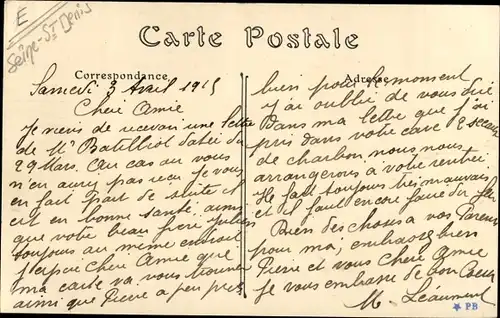 E
Seine-St Denis
Carte Postale
Correspondance
Adresse
Samedi 3 Avril 1915
Chère Amie
Je viens de recevoir une lettre
de Mr Batilliot datée du
29 Mars. Au cas ou vous
n'en auriez pas reçu je vous
en fait part de suite il
est en bonne santé, ainsi
que votre beau frère Julien
toujours au même endroit
J'espère Chère Amie que
ma carte va vous trouver
ainsi que Pierre a peu près
bien pour le moment
j'ai oublié de vous dire
Dans ma lettre que j'ai
pris dans votre cave 2 seaux
de charbon, nous nous
arrangerons à votre rentrée
Il fait toujours très mauvais
et il faut encore faire du feu
Bien des choses a vos Parents
pour moi, embrassez bien
Pierre et vous Chère Amie
Je vous embrasse de bon Cœur
M. Léaument
PB